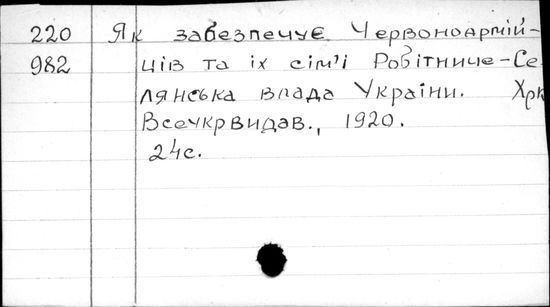 220 Як забезпечує Червоноармій-
982 ців та їх сім'ї Робітниче-Се
лянська влада України. Хрк
Всеукрвидав., 1920.
24с.